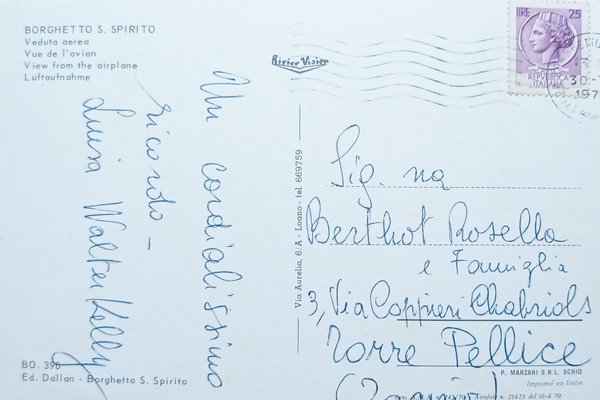 BORGHETTO S. SPIRITO
Veduta aerea
Vue de l'avion
View from the airplane
Luftaufnahme
Un cordialissimo
ricordo -
Luisa Walter Kelly
BO. 390
Ed. Dallan - Borghetto S. Spirito
Rivier Vision
Via Aurelia, 6/A - Loano - tel. 669759
LIRE 25
REPVBBLICA
ITALIANA
30-
197
Sig. na
Berthot Rosella
e Famiglia
3, Via Coppieri Chabriols
Torre Pellice
P. MARZARI S.R.L. SCHIO
Imprimé en Italie
n. 21423 del 16-4-70